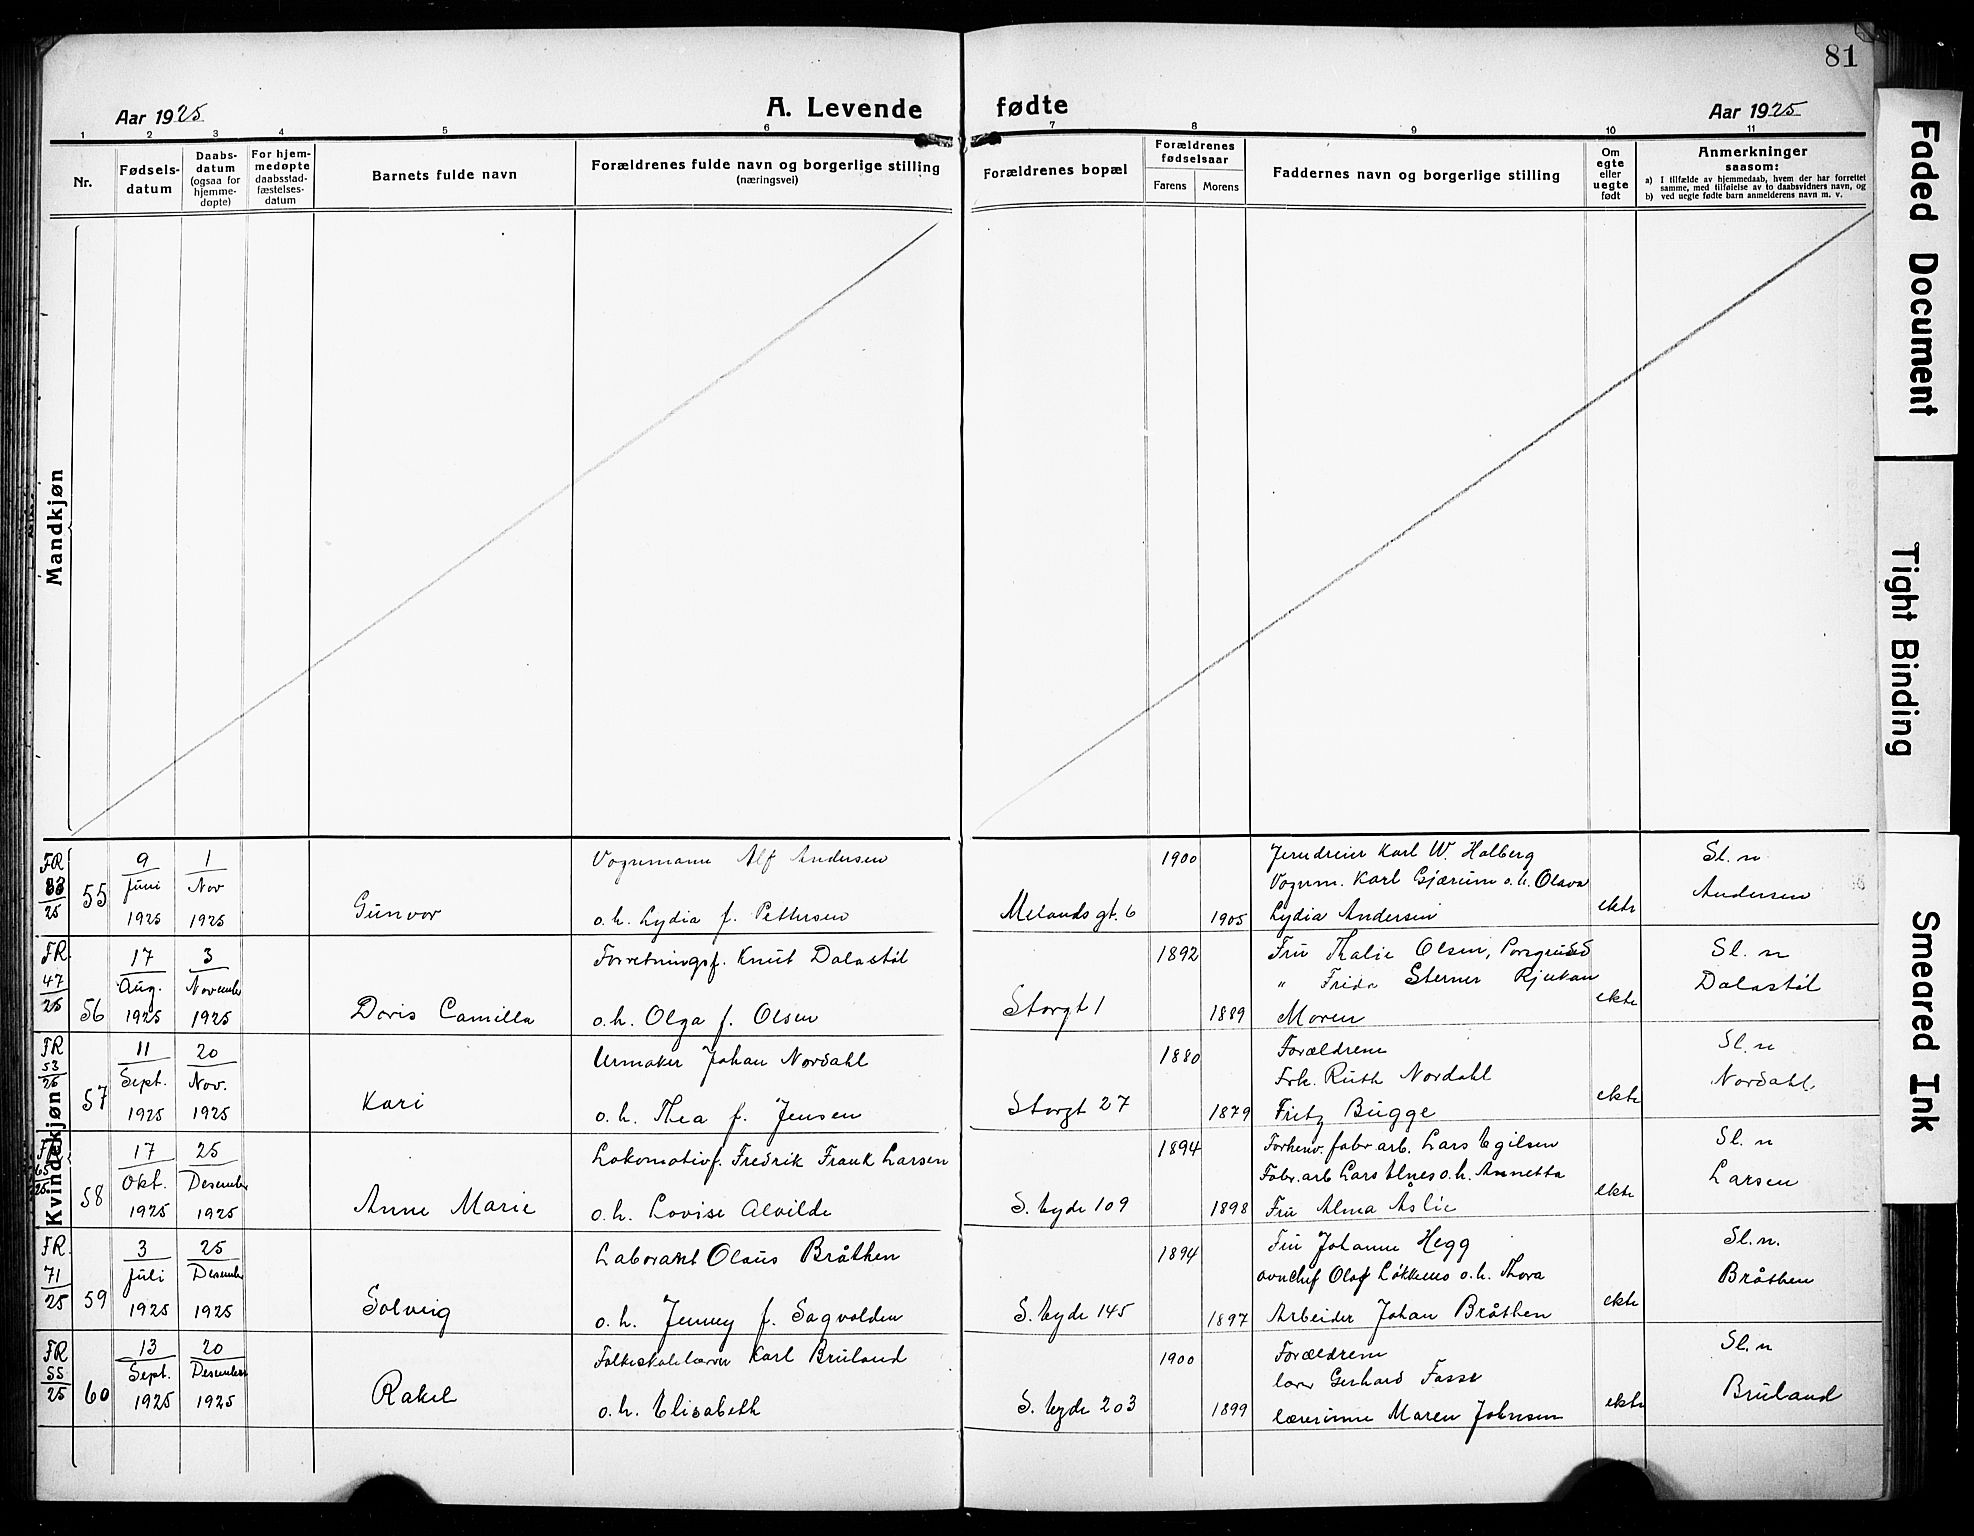 81
Aar 1925
A. Levende fødte
Aar 1925
1 2 3 4 5 6 7 8 9 10 11
Nr.
Fødsels-
datum
Daabs-
datum
(ogsaa for
hjemme-
døpte)
For hjem-
medøpte
daabsstad-
fæstelses-
datum
Barnets fulde navn
Forældrenes fulde navn og borgerlige stilling
(næringsvei)
Forældrenes bopæl
Forældrenes
fødselsaar
Farens Morens
Faddernes navn og borgerlige stilling
Om
egte
eller
uegte
født
Anmerkninger
saasom:
a) I tilfælde av hjemmedaab, hvem der har forrettet
samme, med tilføielse av to daabsvidners navn, og
b) ved uegte fødte barn anmelderens navn m. v.
Mandkjøn
Kvindekjøn
FR 83/25 55
9/Juni 1925
1/Nov 1925
Gunvor
Vognmann Alf Andersen
o.h. Lydia f. Pettersen
Melands gt. 6
1900 1905
Jerndreier Karl W. Halberg
Vognm. Karl Gjærum o.h. Olava
Lydia Andersen
ekte
Sl. n
Andersen
FR 47/25 56
17/Aug. 1925
3/November 1925
Doris Camilla
Forretningsf. Knut Dalastøl
o.h. Olga f. Olsen
Storgt 1
1892 1889
Fru Thalie Olsen, Porsgrund
" Frida Sterner Rjukan
Moren
ekte
Sl. n
Dalastøl
FR 53/25 57
11/Sept. 1925
20/Nov. 1925
Kari
Urmaker Johan Nordahl
o.h. Thea f. Jensen
Storgt 27
1880 1879
Forældrene
Frk. Ruth Nordahl
Fritz Bugge
ekte
Sl. n
Nordahl
FR 65/25 58
17/Okt. 1925
25/Desember 1925
Anne Marie
Lokomotivf. Fredrik Frank Larsen
o.h. Lovise Alvilde
S. byde 109
1894 1898
Forhenv. fabr arb. Lars Egilsen
Fabr. arb Lars Ulnes o.h. Annetta
Fru Alma Åslie
ekte
Sl. n
Larsen
FR. 71/25 59
3/Juli 1925
25/Desember 1925
Solveig
Laborant Olaus Bråthen
o.h. Jenny f. Sagvolden
S. byde 145
1894 1897
Fru Johanne Hegg
ovnchef Olaf Løkkens o.h. Thora
Arbeider Johan Bråthen
ekte
Sl. n.
Bråthen
FR 55/25 60
13/Sept. 1925
20/Desember 1925
Rakel
Folkeskolelærer Karl Bruland
o.h. Elisabeth
S. byde 203
1900 1899
Forældrene
lærer Gerhard Fosse
lærerinne Maren Johnsen
ekte
Sl. n
Bruland
Faded Document
Tight Binding
Smeared Ink